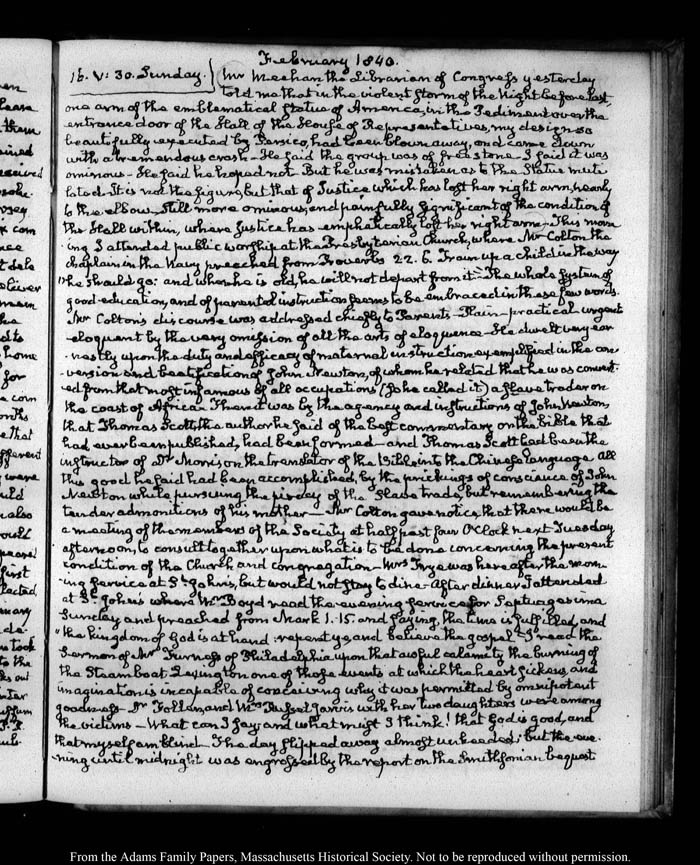 February 1840.
16. V: 30. Sunday.
Mr Meehan the Librarian of Congress yesterday
told me that in the violent storm of the Night before last,
one arm of the emblematical Statue of America, in the Pediment over the
entrance door of the Hall of the House of Representatives, my design so
beautifully executed by Persico, had been blown away, and come down
with a tremendous crash – He said the group was of free stone – I said it was
ominous – He said he hoped not. But he was mistaken as to the Statue muti
lated – It is not the figure, but that of Justice which has lost her right arm, nearly
to the elbow – Still more ominous, and painfully significant of the condition of
the Hall within, where Justice has emphatically lost her right arm – This morn
ing I attended public worship at the Presbyterian Church, where Mr Colton the
chaplain in the Navy preached from Proverbs 22. 6. Train up a child in the way
he should go: and when he is old, he will not depart from it – The whole system of
good education, and of parental instruction seems to be embraced in these few words.
Mr Colton's discourse was addressed chiefly to Parents – Plain – practical – urgent
eloquent by the very omission of all the arts of eloquence – He dwelt very ear
nestly upon the duty and efficacy of maternal instruction exemplified in the con
version and beatification of John Newton, of whom he related that he was convert
ed from that most infamous of all occupations (so he called it) a slave trader on
the coast of Africa – Then it was by the agency and instructions of John Newton,
that Thomas Scott, the author he said of the best commentary on the bible that
had ever been published, had been formed – and Thomas Scott had been the
instructor of Dr Morrison the translator of the Bible into the Chinese language all
this good he said had been accomplished, by the prickings of conscience of John
Newton while pursuing the piracy of the Slave trade, but remembering the
tender admonitions of his mother – Mr Colton gave notice that there would be
a meeting of the members of the Society at half past four O'Clock next Tuesday
afternoon, to consult together upon what is to be done concerning the present
condition of the Church and congregation – Mrs Frye was here after the morn
ing service at St John's, but would not stay to dine – After dinner I attended
at St John's where Mr Boyd read the evening service for Septuagesima
Sunday and preached from Mark 1. 15. and saying, the time is fulfilled, and
the kingdom of God is at hand: repent ye and believe the gospel – I read the
Sermon of Mr Furness of Philadelphia upon that awful calamity the burning of
the Steamboat Lexington one of those events at which the heart sickens, and
imagination is incapable of conceiving why it was permitted by omnipotent
goodness – Dr Follen, and Mrs Russel Jarvis with her two daughters were among
the victims – What can I say; and what must I think! that God is good, and
that myself am blind – The day slipped away almost unheeded; but the eve
ning until midnight was engrossed by the report on the Smithsonian bequest
From the Adams Family Papers, Massachusetts Historical Society. Not to be reproduced without permission.